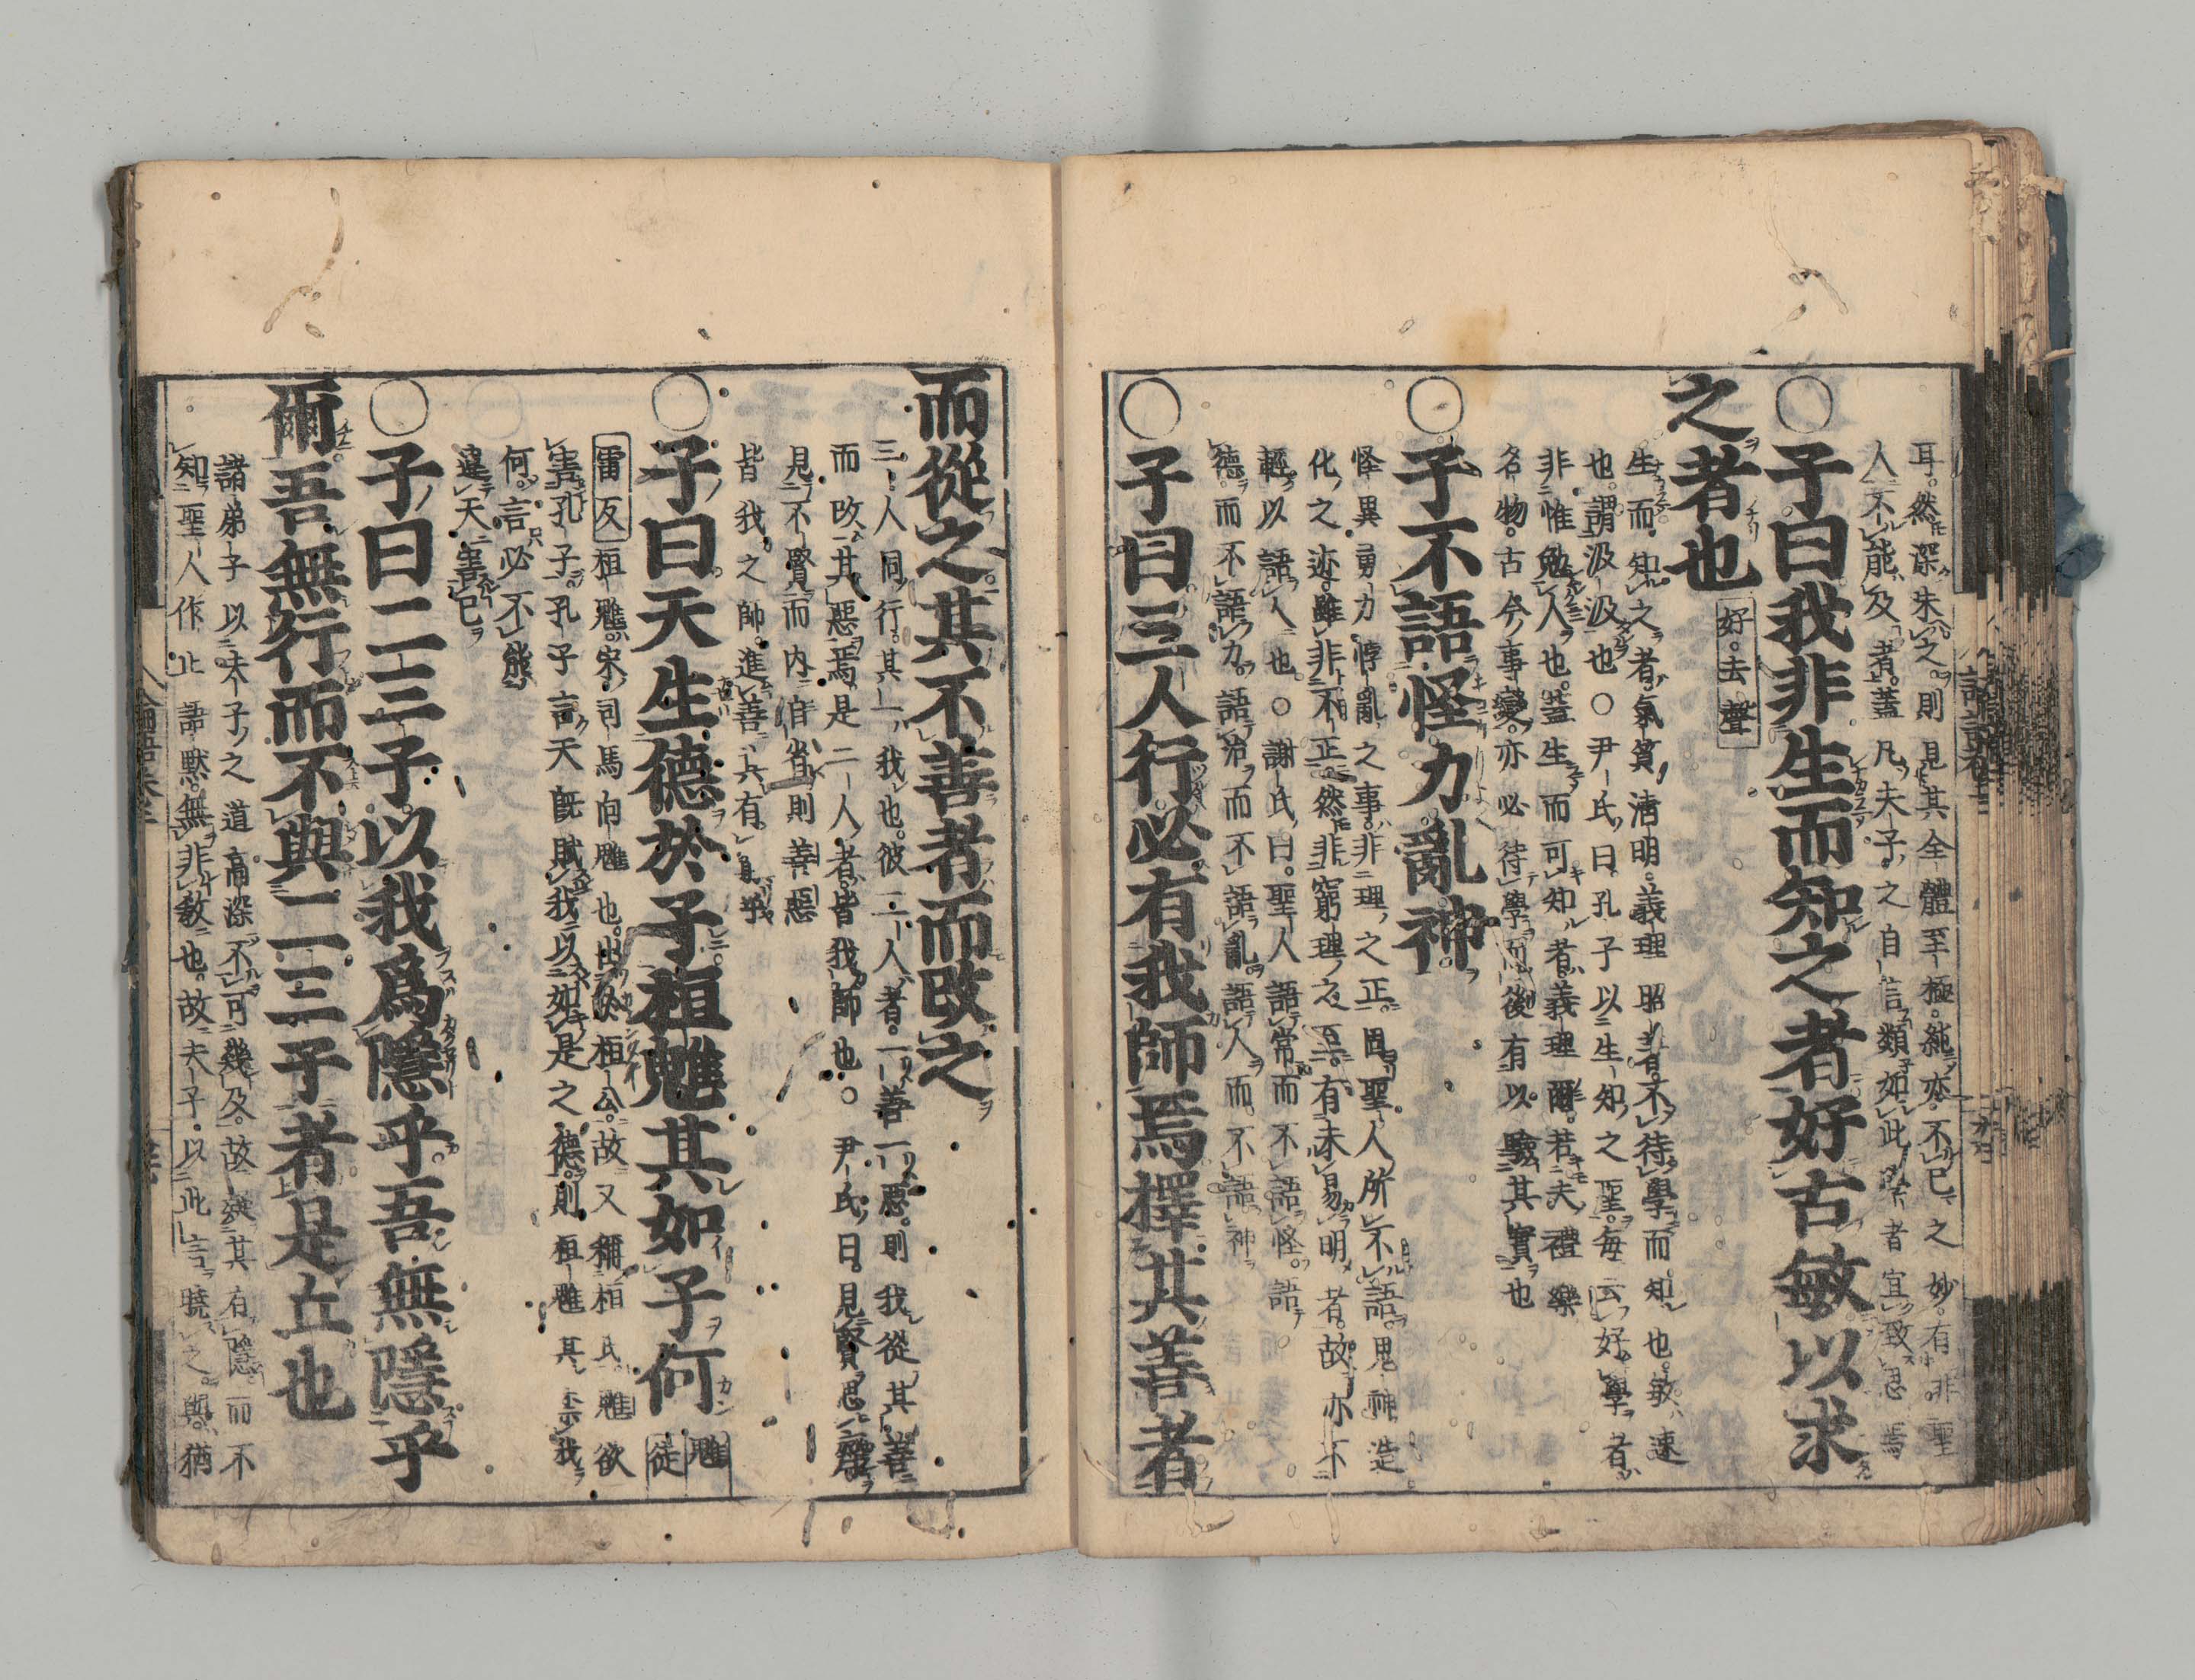 耳。然深味之則見其全體至極純亦不已之妙有非聖
人不能及者蓋凡夫子之自言類如此學者宜致思焉
○子曰我非生而知之者好古敏以求
之者也 好去聲
生而知之者氣質淸明義理昭著不待學而知也敏速
也謂汲汲也○尹氏曰孔子以生知之聖每云好學者
非惟勉人也蓋生而可知者義理爾若夫禮樂
名物古今事變亦必待學而後有以驗其實也
○子不語怪力亂神
怪異勇力悖亂之事非理之正固聖人所不語鬼神造
化之迹雖非不正然非窮理之至有未易明者故亦不
輕以語人也○謝氏曰聖人語常而不語怪語
德而不語力語治而不語亂語人而不語神
○子曰三人行必有我師焉擇其善者
而從之其不善者而改之
三人同行其一我也彼二人者一善一惡則我從其善
而改其惡焉是二人者皆我師也○尹氏曰見賢思齊
見不賢而內自省則善惡
皆我之師進善其有
○子曰天生德於予桓魋其如予何 魋徒
雷反 桓魋宋司馬向魋也出於桓公故又稱桓氏魋欲
害孔子孔子言天旣賦我以如是之德則桓魋其柰我
何言必不能
違天害己
○子曰二三子以我爲隱乎吾無隱乎
爾吾無行而不與二三子者是丘也
諸弟子以夫子之道高深不可幾及故疑其有隱而不
知聖人作止語默無非敎也故夫子以此言曉之與猶